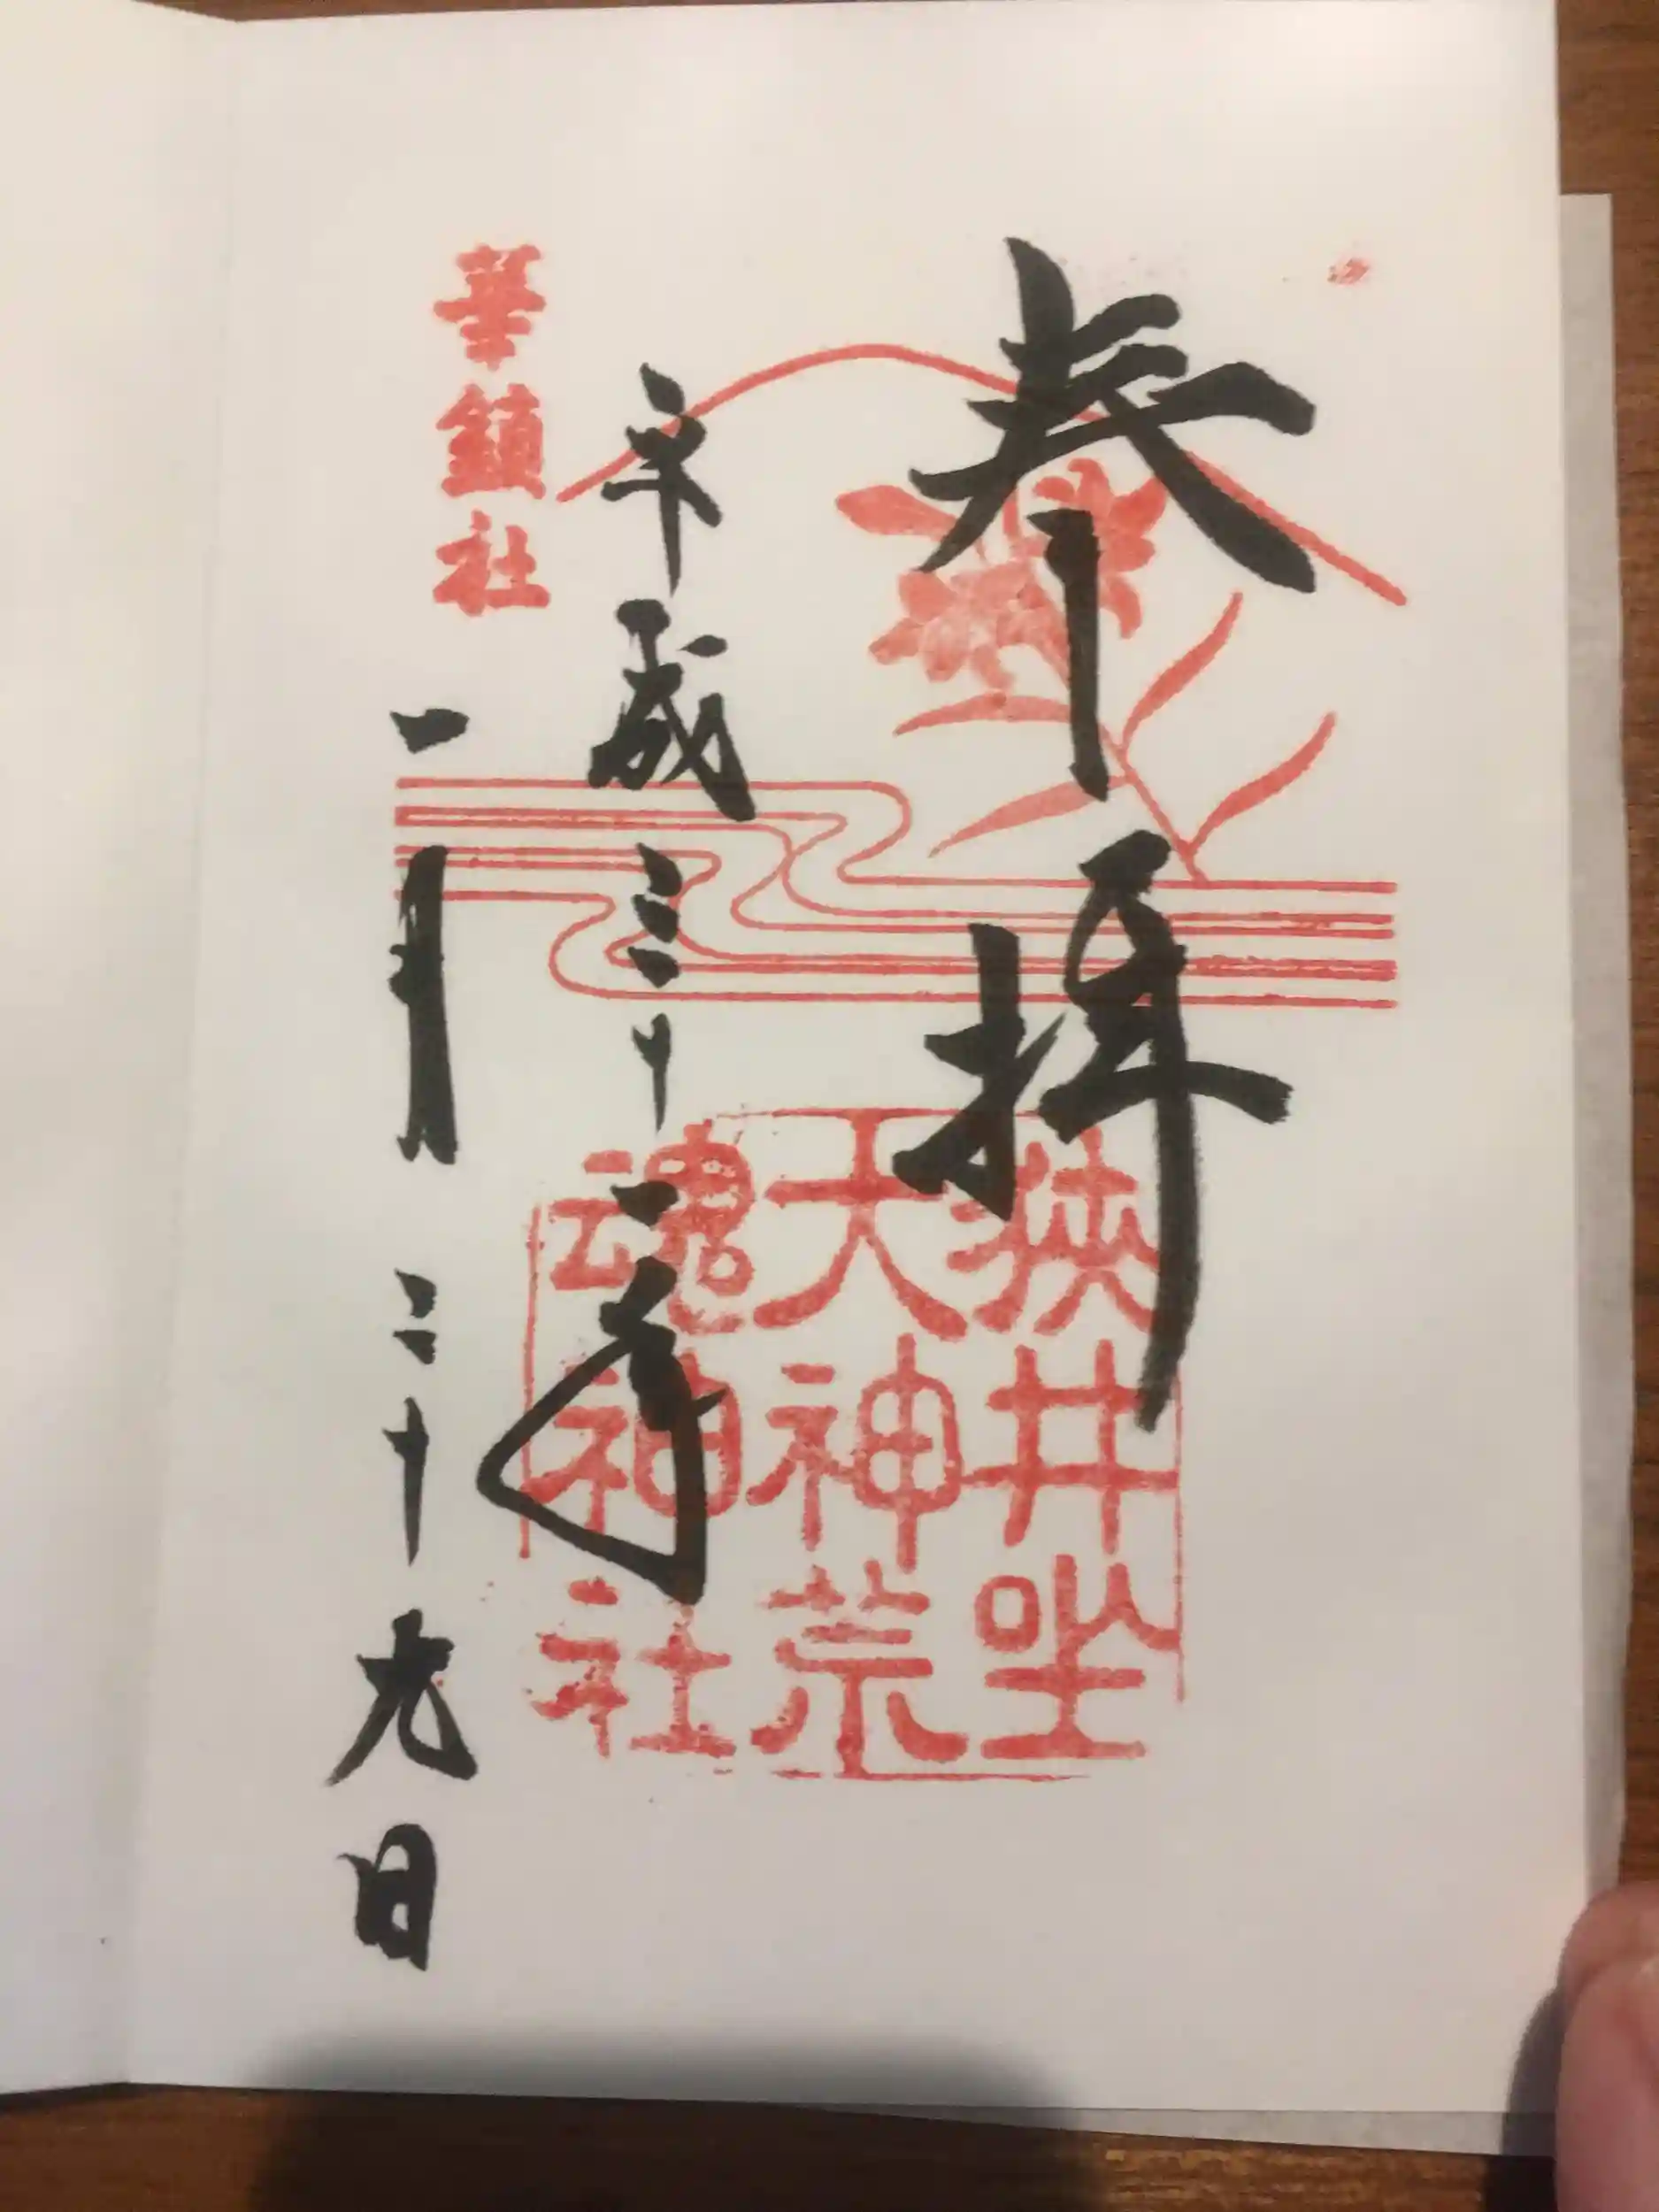 奉拝
狹井坐
大神荒
魂神社
平成三十一年
一月二十九日
華鎮社